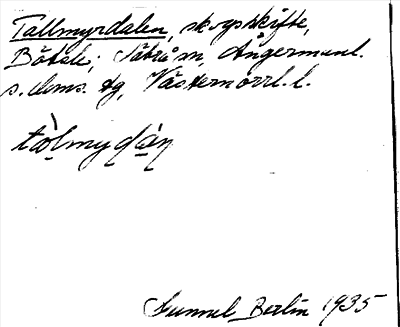 Tallmyrdalen, skogsskifte,
Böle; Såbrå sn, Ångermanl.
s. doms. dg, Västernorrl. l.
tàlmydáṇ
Gunnel Berlin 1935